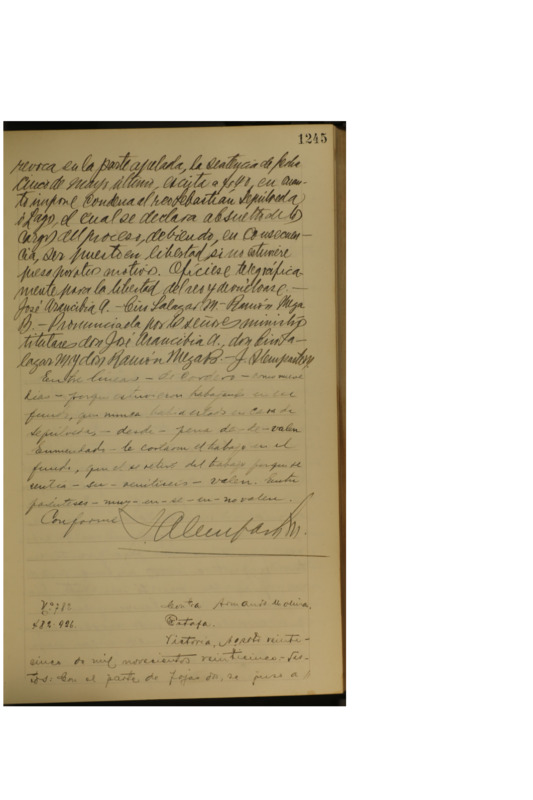 1245
revoca en la parte apelada, la sentencia de fecha
cinco de mayo último, escrita a fs 40, en cuan-
to impone condena al reo Sebastian Sepulveda
Lago, el cual se declara absuelto de los
cargos del proceso, debiendo, en consecuen-
cia, ser puesto en libertad si no estuviere
preso por otro motivo. Ofíciese telegráfica-
mente para la libertad del reo y devuélvase. —
José Arancibia A. — Ciro Salazar M. — Ramón Meza
B. — Pronunciada por los señores ministros
titulares don José Arancibia A., don Ciro Sa-
lazar M y don Ramón Meza B. — J. Alemparte
Entre lineas — de Cordero — como
dias — porque estuvieron trabajando en ese
fundo, que nunca en casa de
Sepulveda — desde — pena de — valen
Enmendado — le cortaron el trabajo en el
fundo, que el se retiró del trabajo porque se
— valen. Entre
paréntesis — muy — en — se — en — no valen.
Conforme
Nº 782 Contra Armando Medina,
Estafa.
Victoria, Agosto veinti-
cinco de mil novecientos veinticinco — Vis-
tos: Con el parte de fojas se puso a